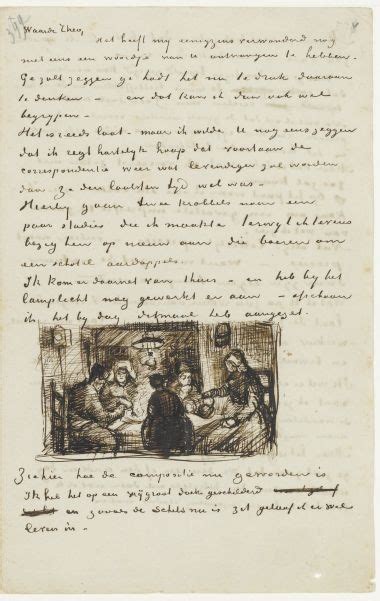 Waarde Theo,
Het heeft mij eenigzins verwonderd nog
niet eens een woordje van U ontvangen te hebben.
Ge zult zeggen ge hadt het nu te druk daaraan
te denken – en dat kan ik dan ook wel
begrijpen –
Het is reeds laat – maar ik wilde U nog eens zeggen
dat ik regt hartelijk hoop dat voortaan de
correspondentie weer wat levendiger zal worden
dan ze den laatsten tijd wel was –
Hierbij gaan twee krabbels naar een
paar studies die ik maakte terwijl ik tevens
bezig ben op nieuw aan die boeren om
een schotel aardappels.
Ik kom er daarnet van thuis – en heb bij het
lamplicht nog gewerkt er aan – ofschoon
ik het bij dag ditmaal heb aangezet.
Ziehier hoe de compositie nu geworden is
Ik heb het op een vrij groot doek geschilderd
en zooals de schets nu is zit geloof ik er wel
leven in –